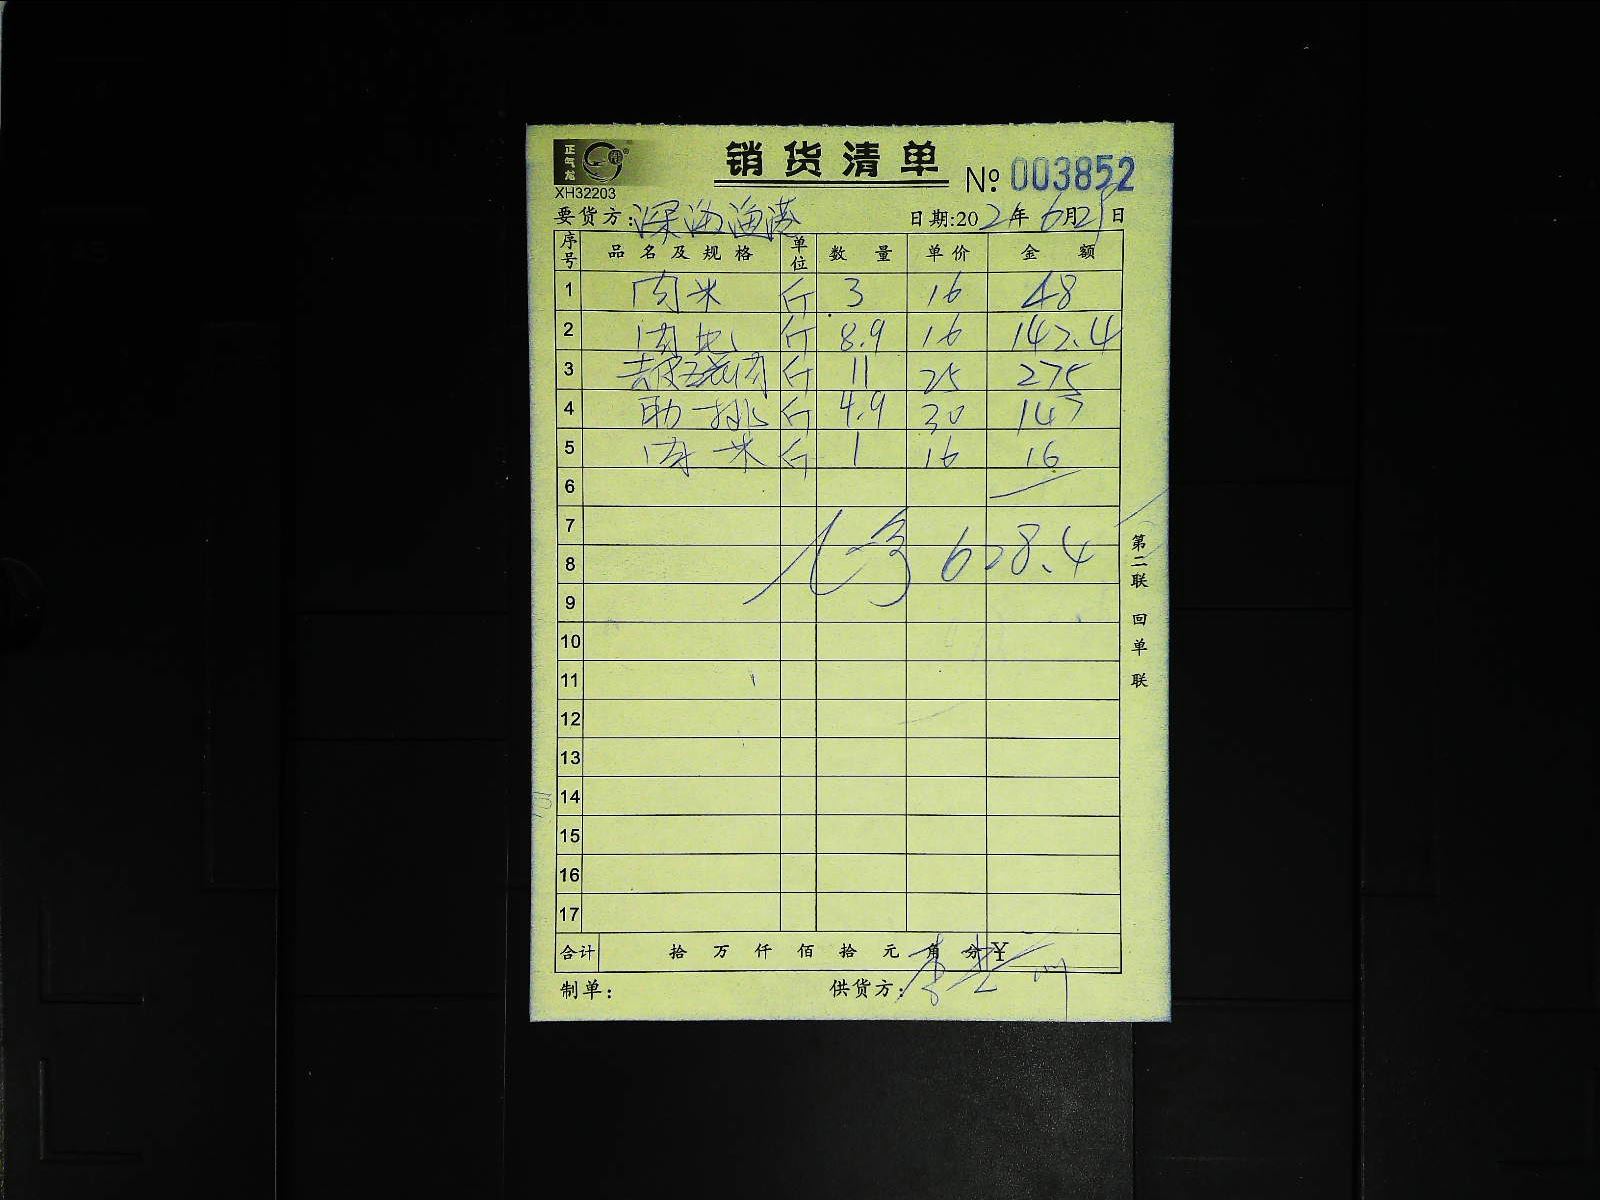 正气龙
XH32203
销货清单
№ 003852
要货方: 深海渔港 日期:2024年6月25日
序号 品名及规格 单位 数量 单价 金额
1 肉米 斤 3 16 48
2 肉 斤 8.9 16 142.4
3 去皮五花肉 斤 11 25 275
4 肋排 斤 4.9 30 147
5 肉米 斤 1 16 16
6
7
8 628.4
9
10
11
12
13
14
15
16
17
合计 拾 万 仟 佰 拾 元 角 分 ¥
制单: 供货方: 李
第二联 回单联